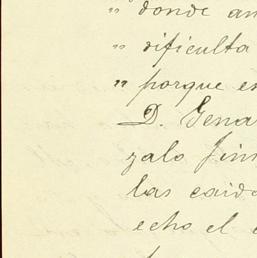 " donde an
" dificulta
" porque es
D. Gena
zalo Jim
las caida
echo el